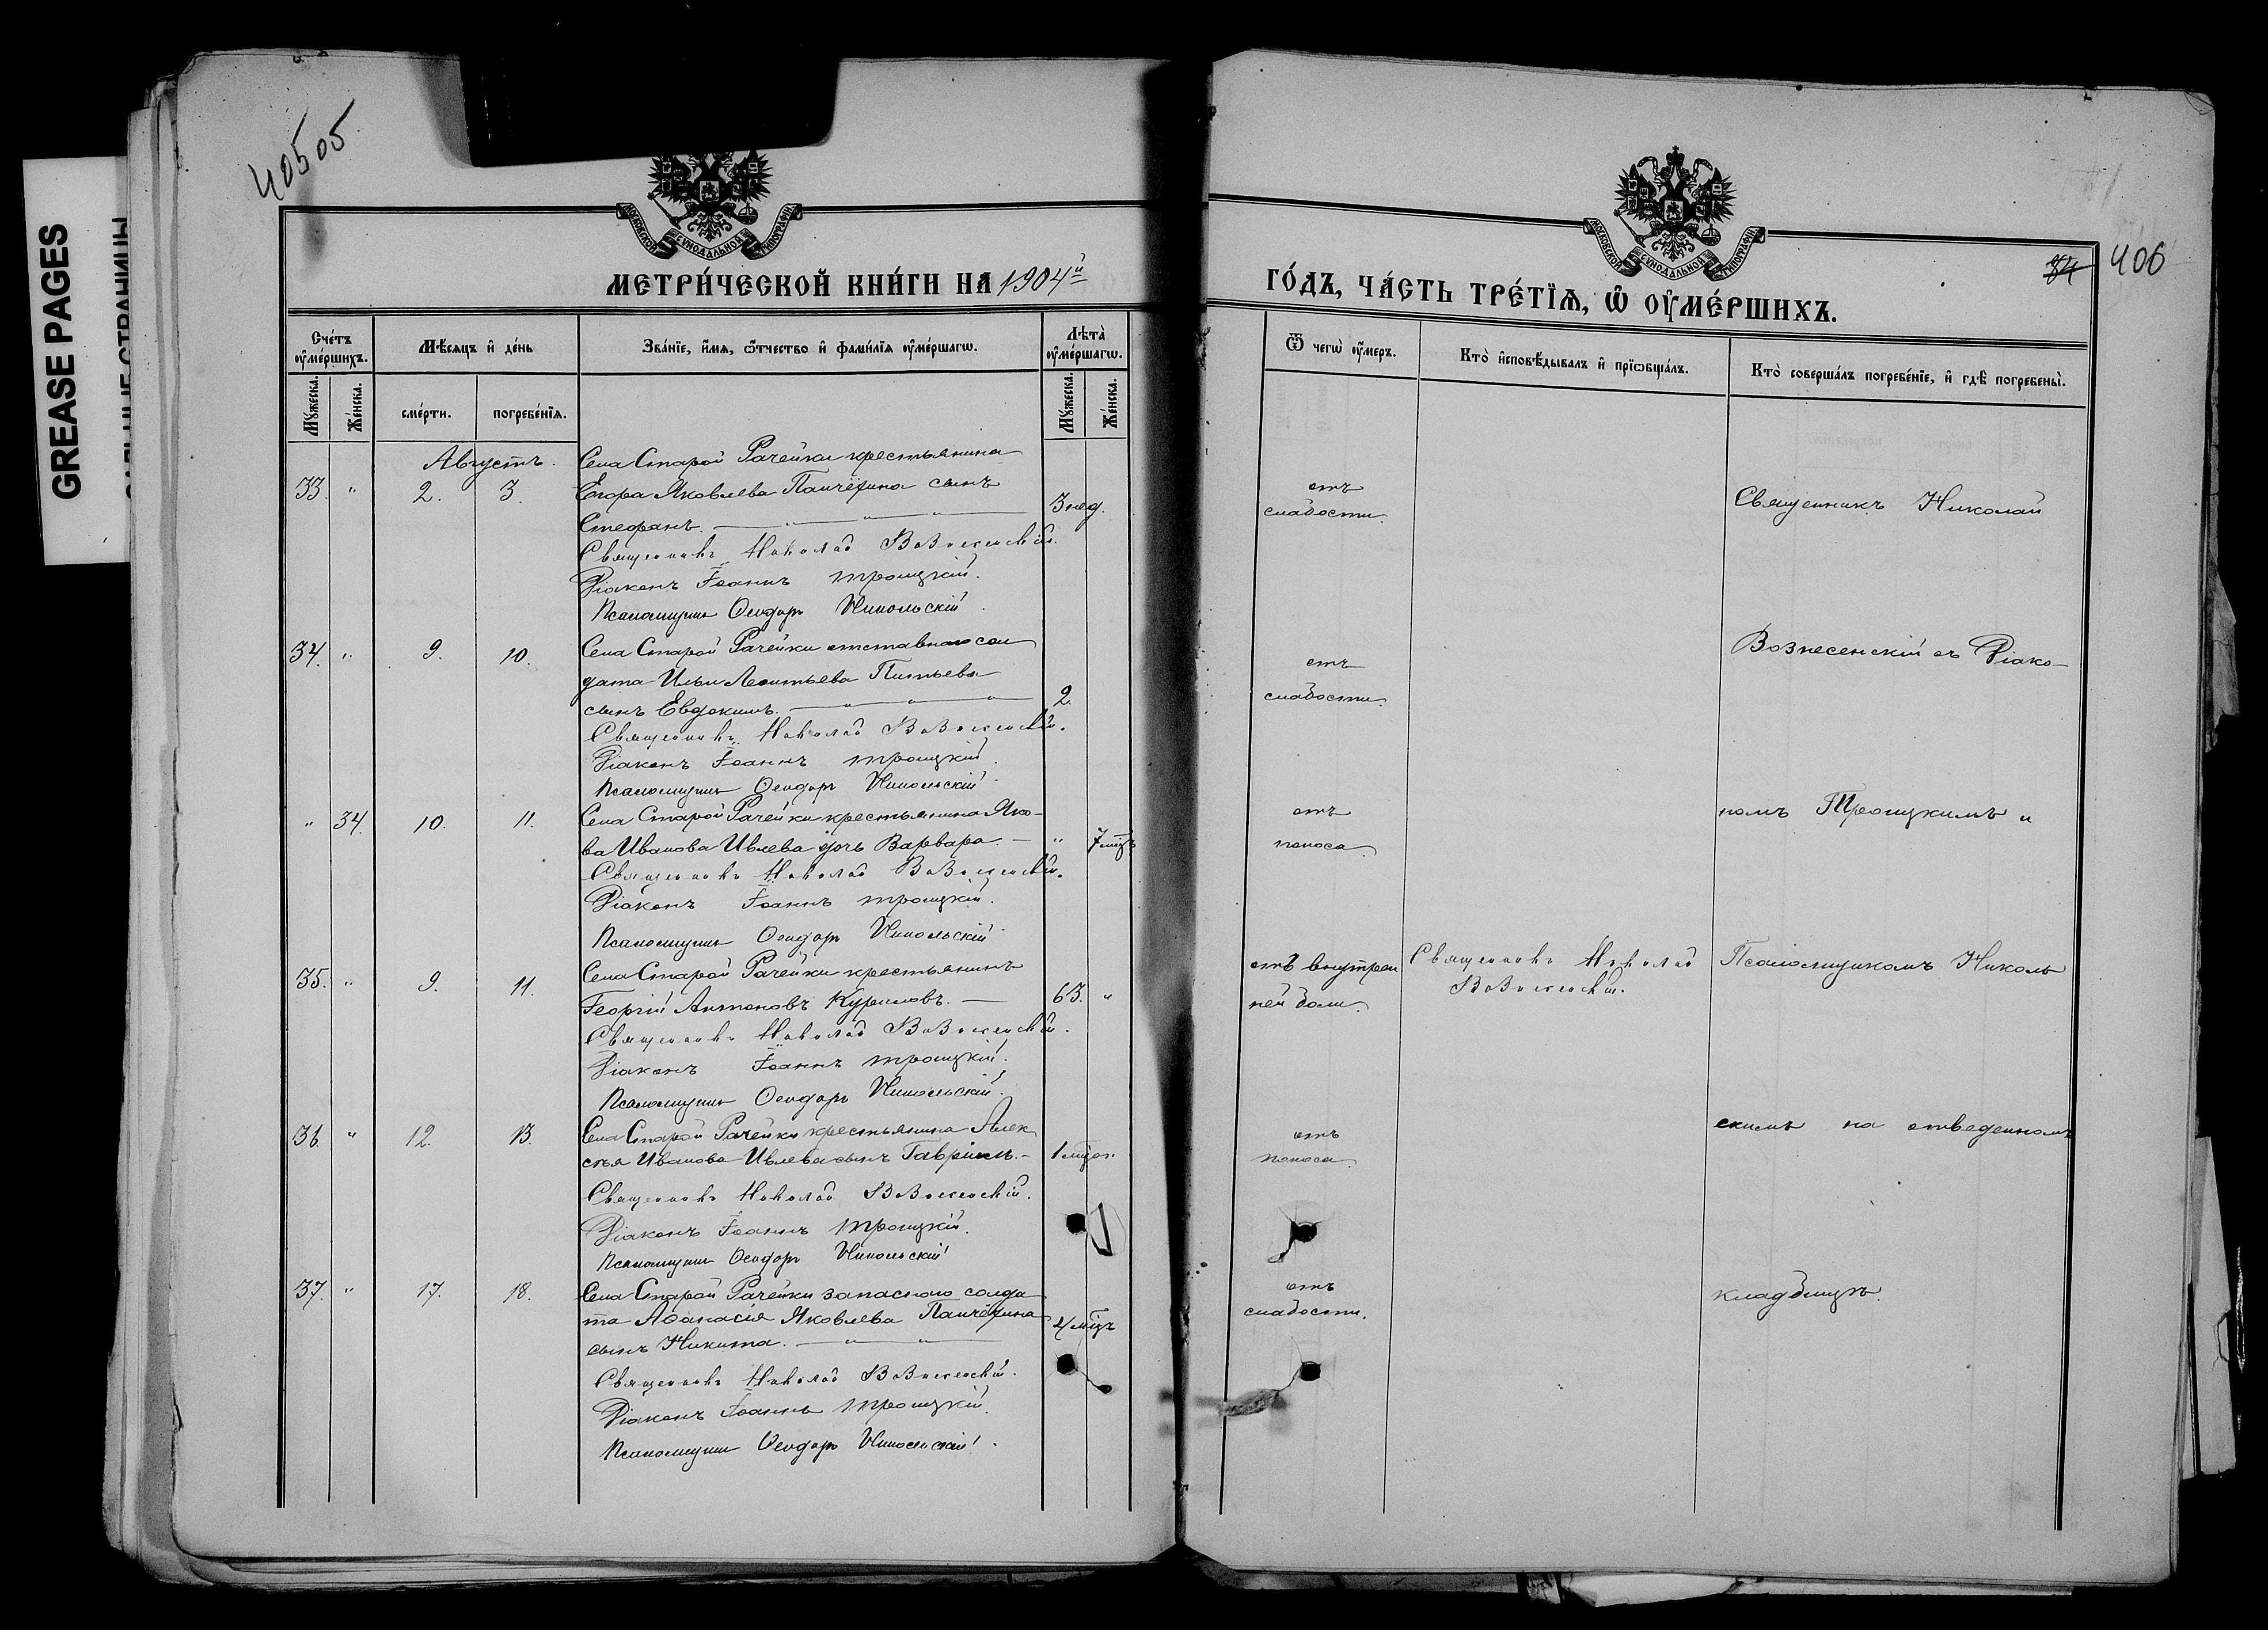 40505
GREASE PAGES
МОСКОВСКОЙ СУНОДАЛЬНОЙ ТИПОГРАФІИ
МЕТРИ́ЧЕСКОЙ КНИ́ГИ НА 1904й
Сче́тъ ᲂу҆ме́ршихъ.
Мѣ́сяцъ и҆ де́нь
Зва́нїе, и҆́мя, ѻ҆́тчество и҆ фами́лїя ᲂу҆ме́ршагѡ.
Лѣта̀ ᲂу҆ме́ршагѡ.
Мꙋ́жеска.
Же́нска.
сме́рти.
погребе́нїя.
Мꙋ́жеска.
Же́нска.
Августъ.
Села Старой Рачейки крестьянина
33. " 2. 3. Егора Яковлева Панчёхина сынъ
Стефанъ. 3 нед.
Священникъ Николай Вознесенскій.
Діаконъ Іоаннъ Троицкій.
Псаломщикъ Ѳеодоръ Никольскій.
34. " 9. 10. Села Старой Рачейки отставного сол
дата Ильи Леонтьева Питьева
сынъ Евдокимъ. 2.
Священникъ Николай Вознесенскій.
Діаконъ Іоаннъ Троицкій.
Псаломщикъ Ѳеодоръ Никольскій
" 34. 10. 11. Села Старой Рачейки крестьянина Яко-
ва Иванова Ивлева дочь Варвара. " 7 мцъ
Священникъ Николай Вознесенскій.
Діаконъ Іоаннъ Троицкій.
Псаломщикъ Ѳеодоръ Никольскій
35. " 9. 11. Села Старой Рачейки крестьянинъ
Георгій Антоновъ Куриловъ. 63. "
Священникъ Николай Вознесенскій.
Діаконъ Іоаннъ Троицкій.
Псаломщикъ Ѳеодоръ Никольскій.
36. " 12. 13. Села Старой Рачейки крестьянина Алек
сѣя Иванова Ивлева сынъ Гавріилъ. 1 мцъ
Священникъ Николай Вознесенскій.
Діаконъ Іоаннъ Троицкій.
Псаломщикъ Ѳеодоръ Никольскій
37. " 17. 18. Села Старой Рачейки запаснаго солда
та Аѳанасія Яковлева Панчёхина
сынъ Никита. 4 мцъ
Священникъ Николай Вознесенскій.
Діаконъ Іоаннъ Троицкій.
Псаломщикъ Ѳеодоръ Никольскій.
МОСКОВСКОЙ СУНОДАЛЬНОЙ ТИПОГРАФІИ
84 406
ГО́ДЪ, ЧА́СТЬ ТРЕ́ТЇѦ, Ѽ ОУ҆МЕ́РШИХЪ.
Ѿ чегѡ̀ ᲂу҆́меръ.
Кто̀ и҆сповѣ́дывалъ и҆ прїѡбща́лъ.
Кто̀ соверша́лъ погребе́нїе, и҆ гдѣ̀ погребены̀.
отъ
слабости.
Священникъ Николай
отъ
слабости.
Вознесенскій съ Діако-
отъ
поноса.
номъ Троицкимъ и
отъ внутрен
ней боли.
Священникъ Николай
Вознесенскій.
Псаломщикомъ Николь
отъ
поноса.
скимъ на отведенномъ
отъ
слабости.
кладбищѣ.